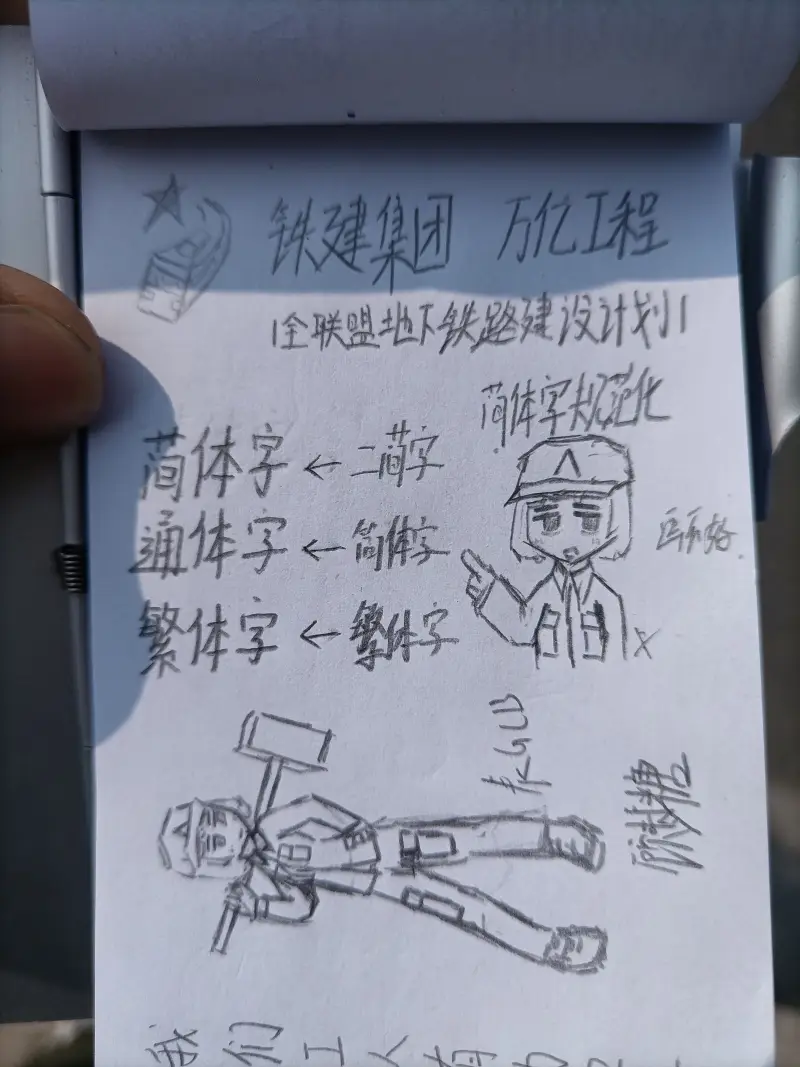 铁建集团 万亿工程
全联盟地下铁路建设计划
简体字规范化
简体字 ← 二简字
通体字 ← 简体字
繁体字 ← 繁体字
我们工人有力